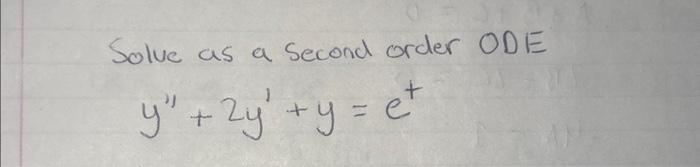 Solve as a Second order ODE
y'' + 2y' + y = e^t